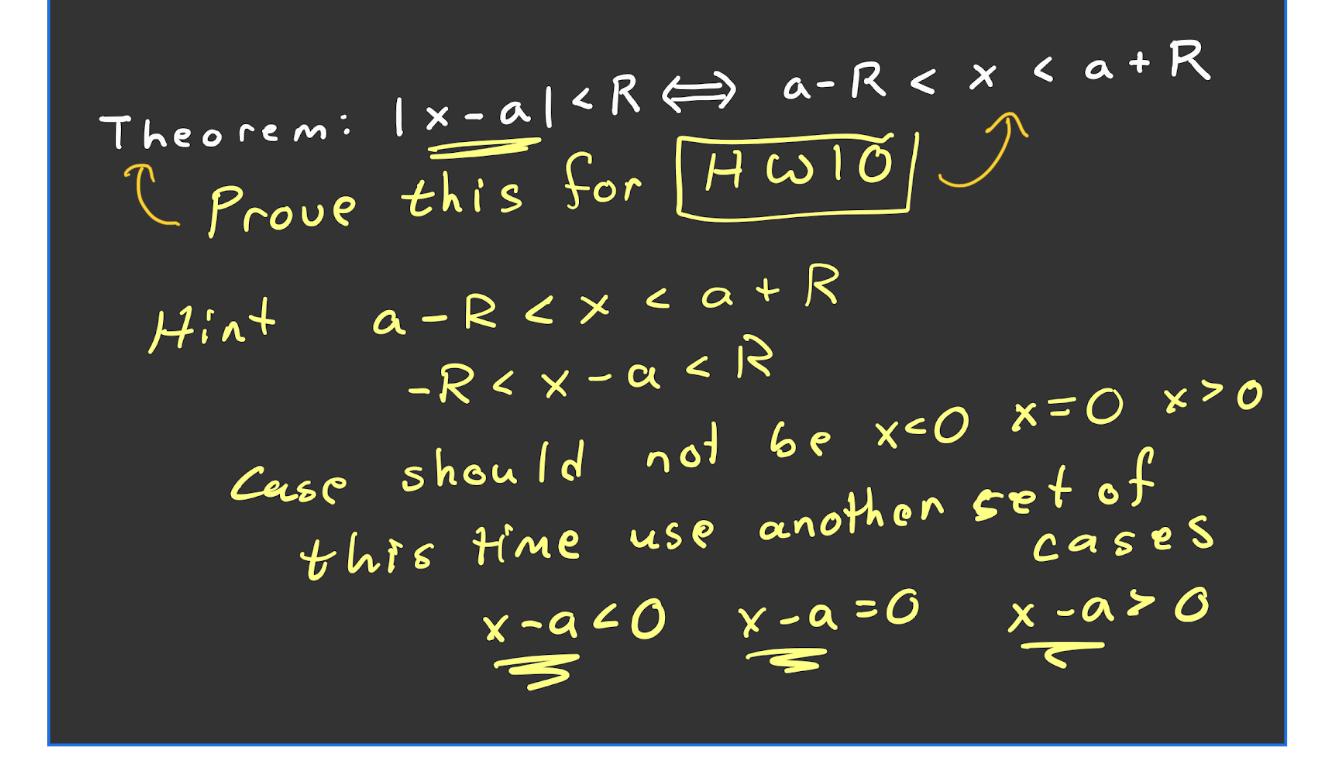 Theorem: |x-a| < R ⟺ a-R < x < a+R
Prove this for HW10
Hint a-R < x < a+R
-R < x-a < R
Case should not be x<0 x=0 x>0
this time use another set of
cases
x-a<0 x-a=0 x-a>0